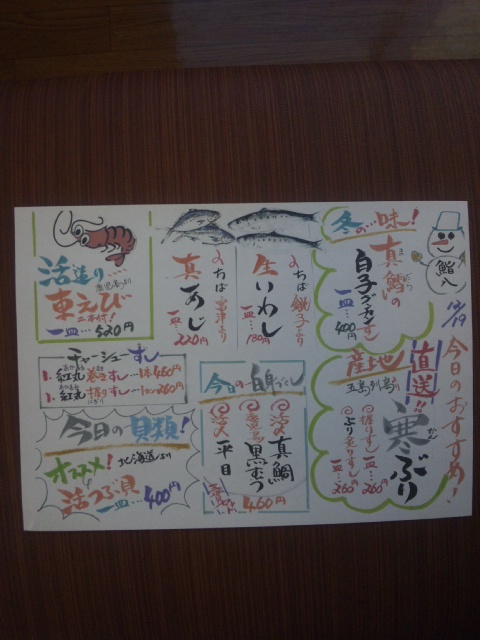 12/19
今日のおすすめ!
冬の一味!
真鱈の
まだら
白子グンカンすし
一皿…400円
鮨八
産地
直送!!
五島列島より
寒ぶり
かん
・握りすし一皿…260円
・より炙りすし一皿…260円
ちば銚子より
生いわし
一皿…180円
ちば富津より
真あじ
一皿…220円
活造り…
車えび
二本付!
一皿…520円
チャーシューすし
1. 紅丸巻きすし…1本460円
1. 紅丸握りすし…1カン260円
今日の白身づくし
活〆真鯛
黒むつ
活〆平目
460円
今日の貝類!
オススメ!
北海道より
活つぶ貝
一皿…400円